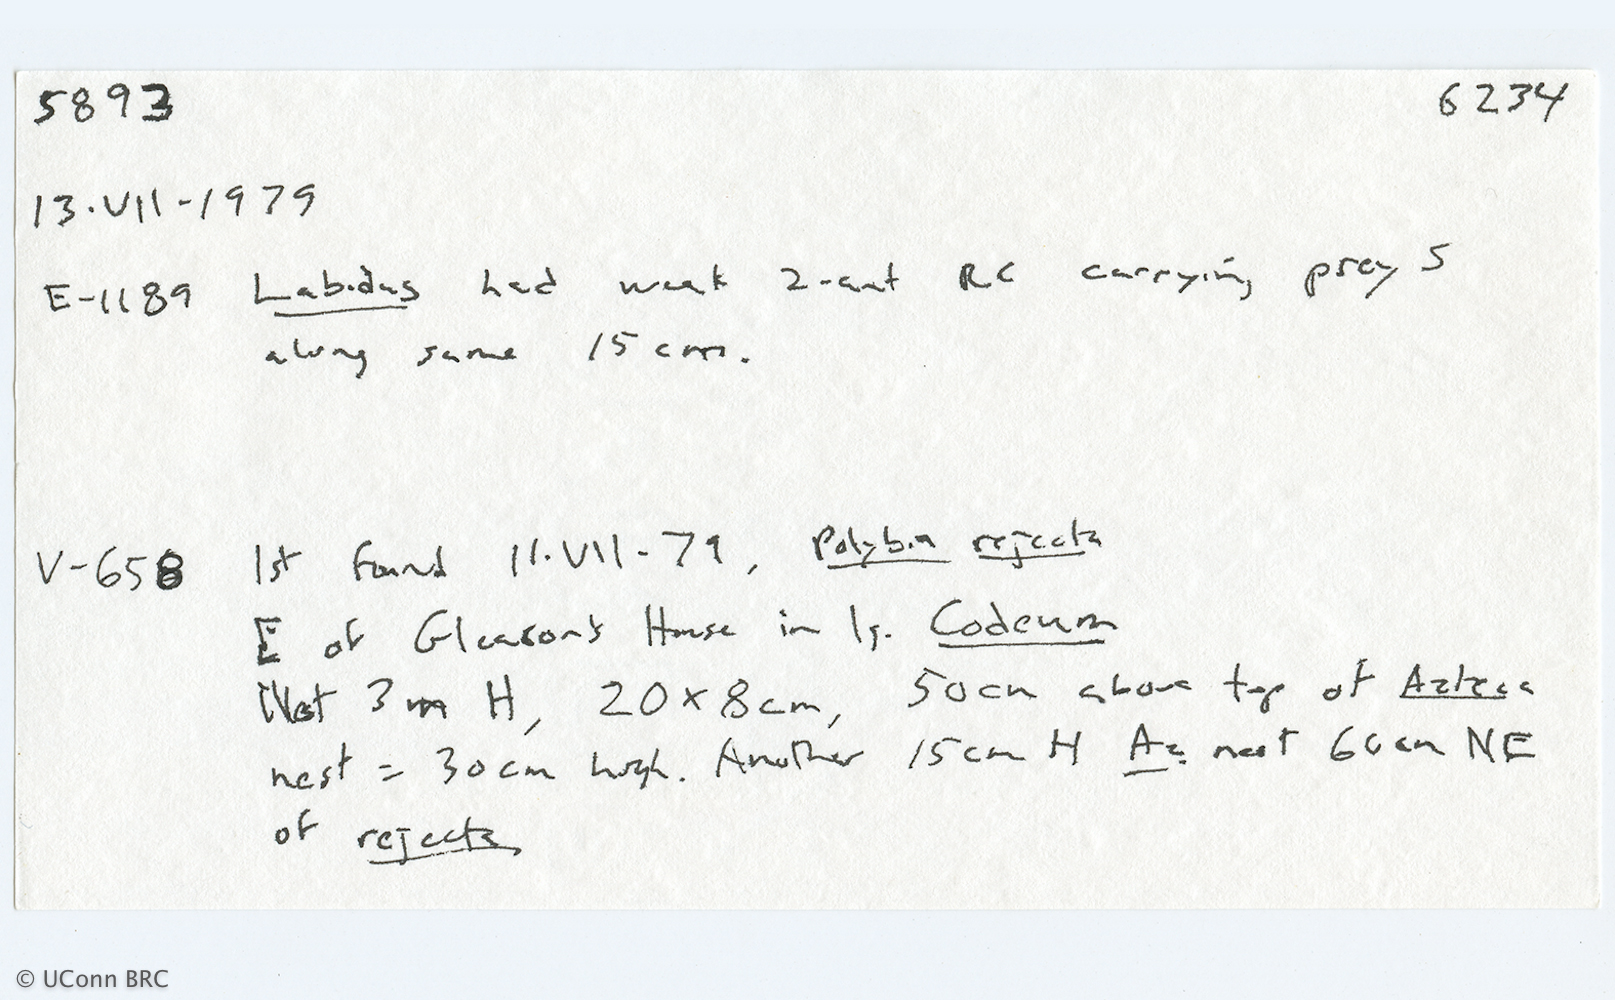 5893 6234
13.VII-1979
E-1189 Labidus had weak 2-ant RC carrying prey S
along same 15cm.
V-658 1st found 11.VII-79, Polybia rejecta
E of Gleason's House in lg. Codeum
Nest 3m H, 20x8cm, 50cm above top of Azteca
nest = 30cm high. Another 15cm H Az. nest 60cm NE
of rejecta
© UConn BRC